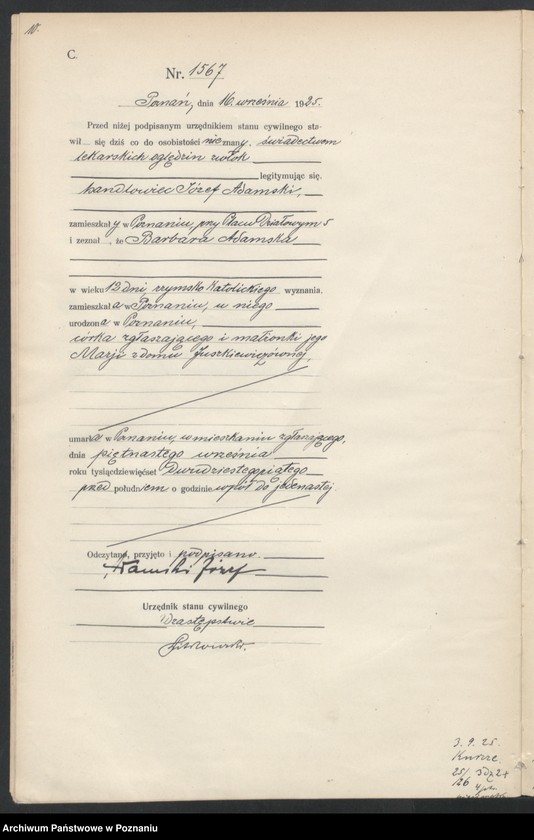 C.
Nr. 1567
Poznań, dnia 16. września 1925.
Przed niżej podpisanym urzędnikiem stanu cywilnego sta-
wił... się dziś co do osobistości nieznany, świadectwem
lekarskich oględzin zwłok
legitymując się.
handlowiec Józef Adamski,
zamieszkały w Poznaniu, przy Placu Działowym 5
i zeznał..., że Barbara Adamska
w wieku 12 dni, rzymsko katolickiego wyznania,
zamieszkała w Poznaniu, u niego
urodzona w Poznaniu,
córka zgłaszającego i małżonki jego
Marji z domu Juszkiewiczównej,
umarła w Poznaniu, w mieszkaniu zgłaszającego,
dnia piętnastego września
roku tysiącdziewięćset Dwudziestegopiątego
przed południem o godzinie wpół do jedenastej
Odczytano, przyjęto i podpisano.
Adamski Józef
Urzędnik stanu cywilnego
W zastępstwie
3. 9. 25.
25/
126
Archiwum Państwowe w Poznaniu